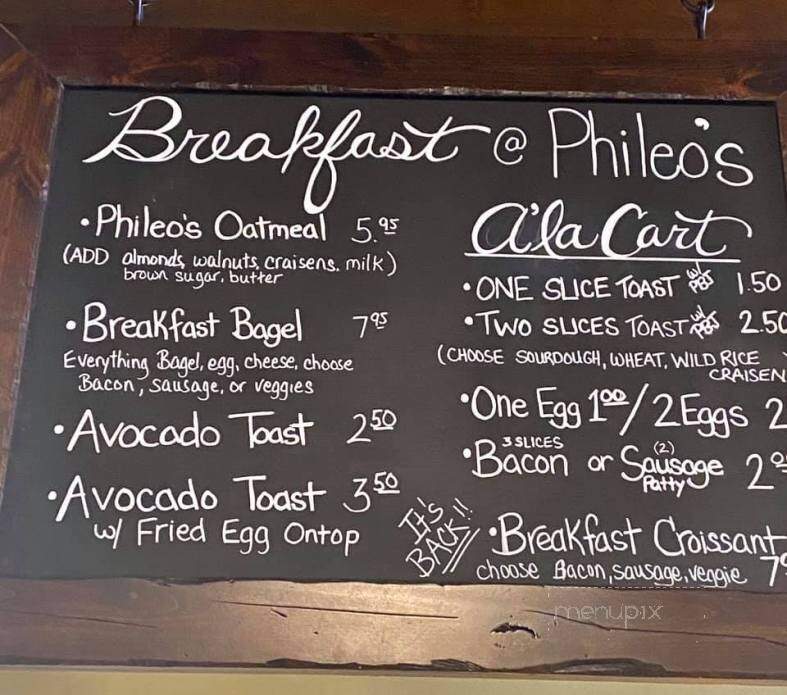 Breakfast @ Phileo's
• Phileo's Oatmeal 5.95
(ADD almonds, walnuts, craisens, milk)
brown sugar, butter
• Breakfast Bagel 7.95
Everything Bagel, egg, cheese, choose
Bacon, sausage, or veggies
• Avocado Toast 2.50
• Avocado Toast 3.50
w/ Fried Egg Ontop
A'la Cart
• ONE SLICE TOAST w/ PB&J 1.50
• TWO SLICES TOAST w/ PB&J 2.50
(CHOOSE SOURDOUGH, WHEAT, WILD RICE
CRAISEN
• One Egg 1.00 / 2 Eggs 2
3 SLICES (2)
• Bacon or Sausage 2.0
Patty
IT'S BACK!!
• Breakfast Croissant
choose Bacon, sausage, veggie 7
menupix